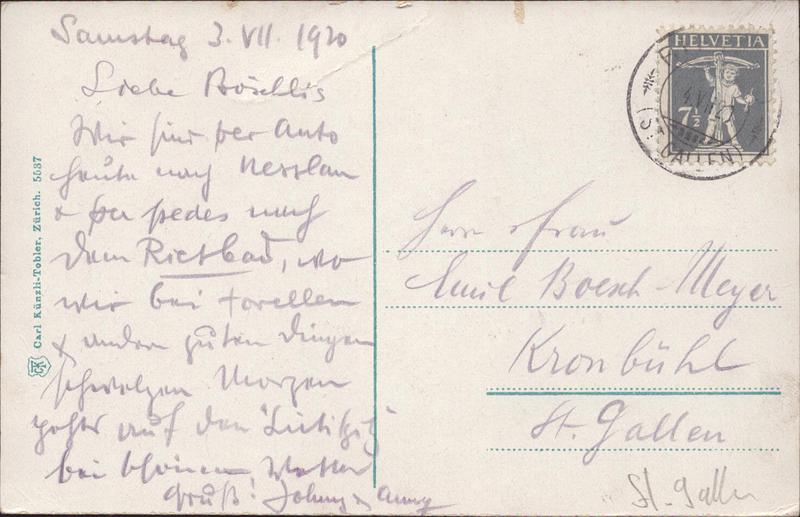 Samstag 3. VII. 1920
Liebe Böschlis
Wir sind per Auto
heute nach Nesslau
& per pedes nach
dem Rietbad, wo
wir bei Forellen
& andern guten Dingen
schwelgen Morgen
geht's auf den
bei schönem Wetter
Gruß! Johny & Anny
Carl Künzli-Tobler, Zürich. 5537
HELVETIA
7½
(ST. GALLEN)
Herr & Frau
Emil Boesch-Meyer
Kronbühl
St. Gallen
St. Gallen